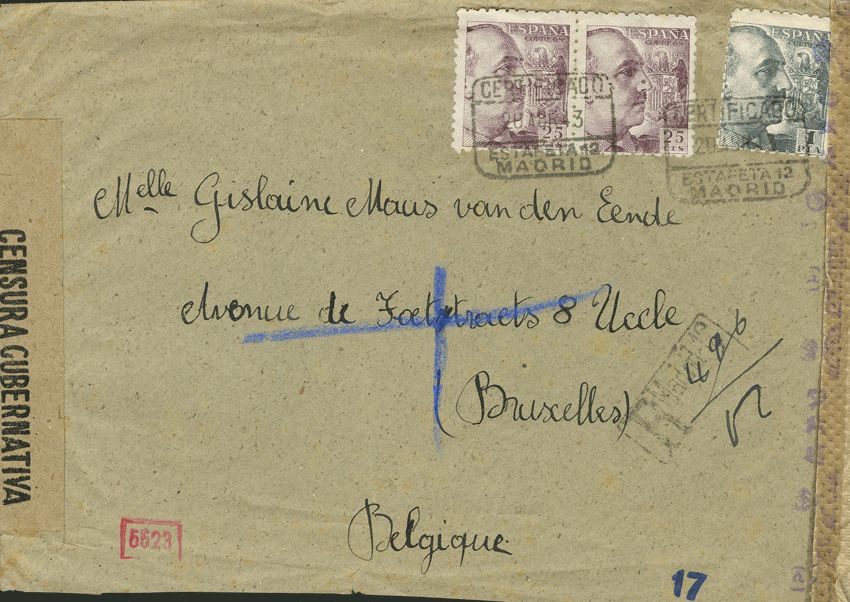 ESPAÑA ESPAÑA ESPAÑA
CORREOS CORREOS CORREOS
CERTIFICADO CERTIFICADO
20 ABR 43
25 25 1
CTS PTA
ESTAFETA 12 ESTAFETA 12
MADRID MADRID
Melle Gislaine Maus van den Eende
Avenue de Foetstraets 8 Uccle
(Bruxelles)
Belgique
CENSURA GUBERNATIVA
R
496
5523
17